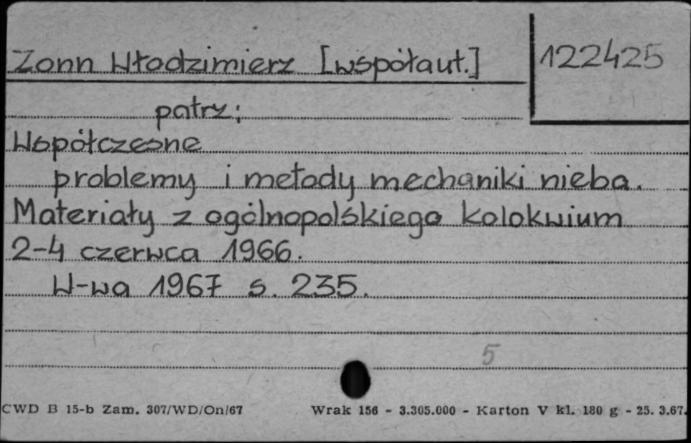 Zonn Włodzimierz [współaut.]
122425
patrz:
Współczesne
problemy i metody mechaniki nieba.
Materiały z ogólnopolskiego kolokwium
2-4 czerwca 1966.
W-wa 1967 s. 235.
5
CWD B 15-b Zam. 307/WD/On/67 Wrak 156 - 3.305.000 - Karton V kl. 180 g - 25. 3.67.